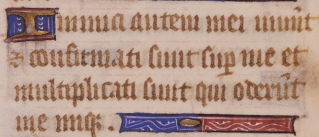 Inimici autem mei vivu͛t
⁊ confirmati sunt sup̱ me et
multiplicati sunt qui oderu̅t
me iniq̱.